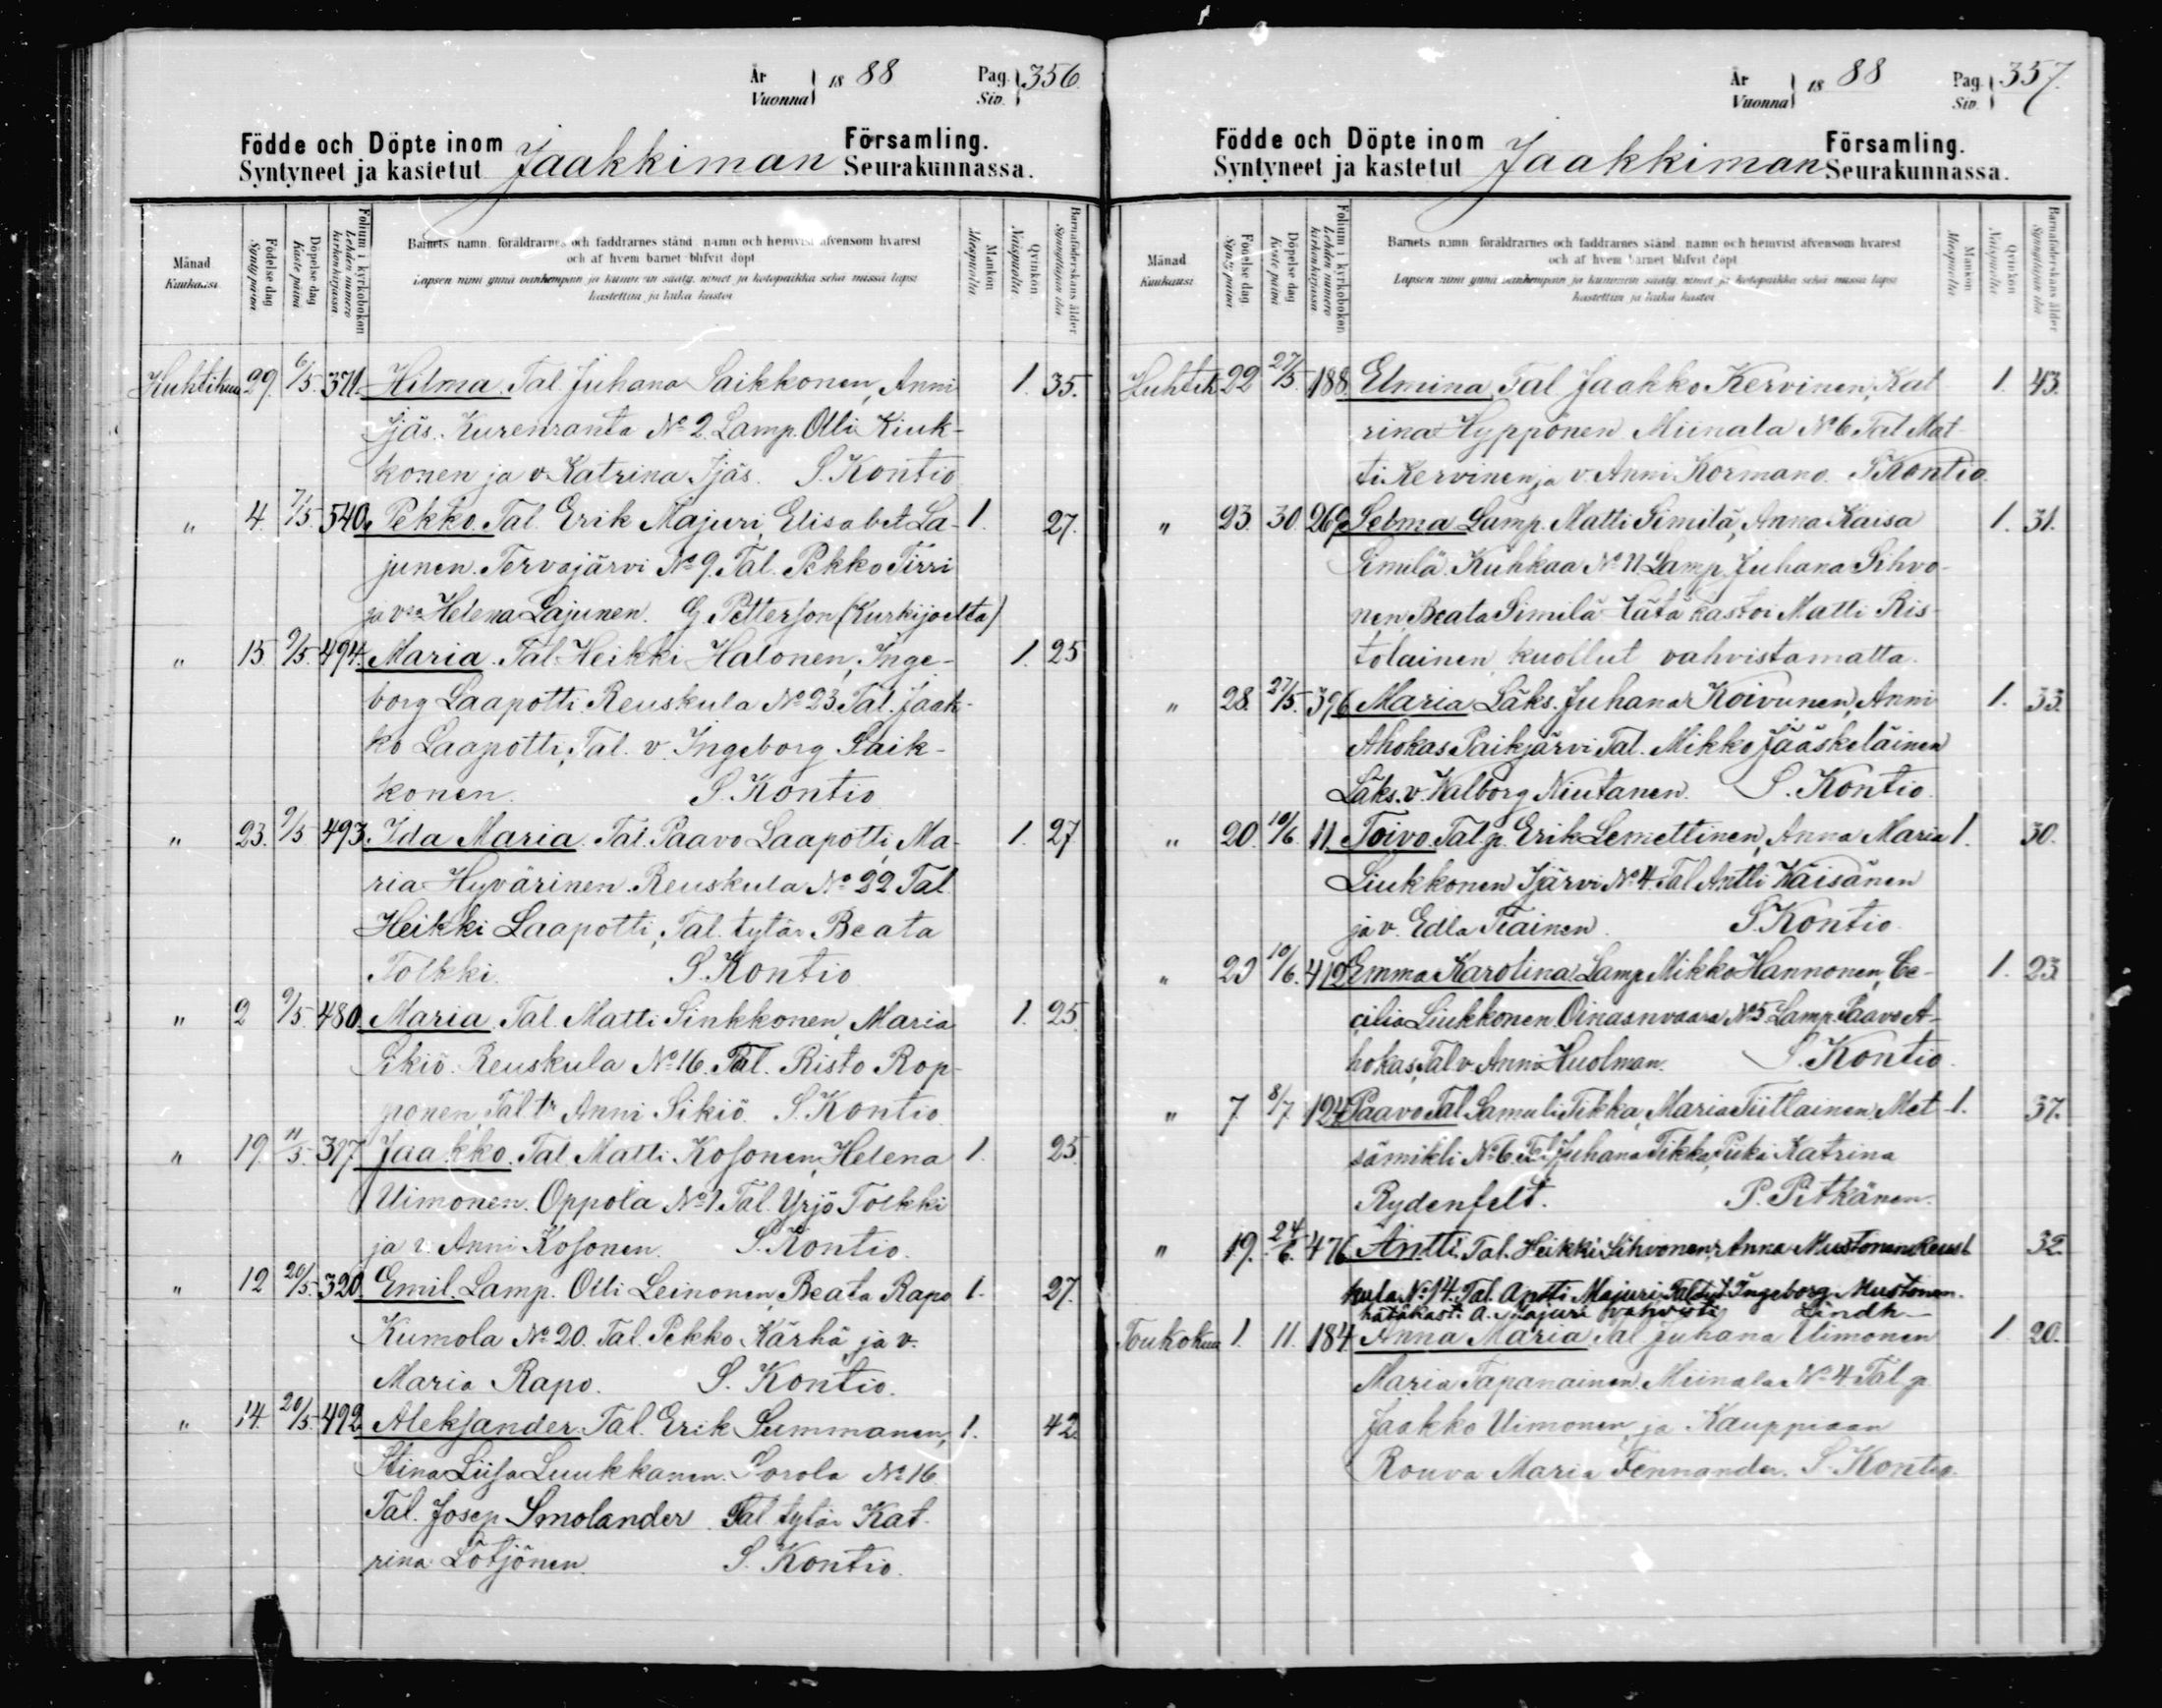 År
Vuonna 18 88 Pag. Siv. 356.
Födde och Döpte inom Församling.
Syntyneet ja kastetut Jaakkiman Seurakunnassa.
Månad
Kuukausi
Födelse dag
Synty päivä
Döpelse dag
Kaste päivä
Folium i kyrkoboken
Lehden numero kirkonkirjassa
Barnets namn, föräldrarnes och faddrarnes stånd, namn och hemvist äfvensom hvarest
och af hvem barnet blifvit döpt
Lapsen nimi ynnä vanhempain ja kummien sääty, nimet ja kotopaikka sekä missä lapsi
kastettiin ja kuka kastoi
Mankön
Miespuolta
Qvinkön
Naispuolta
Barnaföderskans ålder
Synnyttäjän ikä
Huhtikuu 29. 6/5. 371. Hilma. Tal. Juhana Saikkonen, Anni 1. 35.
Ijäs. Kurenranta No 2. Lamp. Olli Kiuk-
konen ja v. Katrina Ijäs. S. Kontio
„ 4. 7/5. 540. Pekko. Tal. Erik Majuri, Elisabet La- 1. 27.
junen. Tervajärvi No 9. Tal. Pekko Tirri
ja vmo Helena Lajunen. G. Petterson (Kurkijoelta)
„ 15 9/5. 494. Maria. Tal. Heikki Halonen, Inge- 1. 25
borg Laapotti Reuskula No 23. Tal. Jaak-
ko Laapotti, Tal. v. Ingeborg Saik-
konen. S. Kontio
„ 23. 9/5 493. Ida Maria. Tal. Paavo Laapotti, Ma- 1. 27
ria Hyvärinen. Reuskula No 22 Tal.
Heikki Laapotti, Tal. tytär Beata
Tolkki. S. Kontio
„ 2 9/5. 480. Maria. Tal. Matti Sinkkonen, Maria 1. 25.
Sikiö. Reuskula No 16. Tal. Risto Rop-
ponen, Tal. tr Anni Sikiö. S. Kontio.
„ 19. 11/5. 317 Jaakko. Tal. Matti Kosonen, Helena 1. 25.
Uimonen. Oppola No 1. Tal. Yrjö Tolkki
ja v. Anni Kosonen. S. Kontio.
„ 12 20/5. 320. Emil. Lamp. Olli Leinonen, Beata Rapo 1. 27.
Kumola No 20. Tal. Pekko Kärhä ja v.
Maria Rapo. S. Kontio.
„ 14. 20/5. 492 Aleksander. Tal. Erik Summanen, 1. 42.
Stina Liisa Luukkanen. Sorola No 16
Tal. Josep Smolander Tal. tytär Kat-
rina Lötjönen. S. Kontio.
År
Vuonna 18 88 Pag. Siv. 357.
Födde och Döpte inom Församling.
Syntyneet ja kastetut Jaakkiman Seurakunnassa.
Månad
Kuukausi
Födelse dag
Synty päivä
Döpelse dag
Kaste päivä
Folium i kyrkoboken
Lehden numero kirkonkirjassa
Barnets namn, föräldrarnes och faddrarnes stånd, namn och hemvist äfvensom hvarest
och af hvem barnet blifvit döpt
Lapsen nimi ynnä vanhempain ja kummien sääty, nimet ja kotopaikka sekä missä lapsi
kastettiin ja kuka kastoi
Mankön
Miespuolta
Qvinkön
Naispuolta
Barnaföderskans ålder
Synnyttäjän ikä
Huhtik 22 27/5. 188. Elmina, Tal. Jaakko Kervinen, Kat- 1. 43.
rina Hyppönen Miinala No 6 Tal. Mat-
ti Kervinen ja v. Anni Kormano. S. Kontio.
„ 23. 30. 269. Selma Lamp. Matti Similä, Anna Kaisa 1. 31.
Similä. Kuhkaa No 11. Lamp. Juhana Sihvo-
nen, Beata Similä hätäkastoi Matti Ris-
tolainen, kuollut vahvistamatta.
„ 28. 27/5. 396 Maria Läks. Juhana Koivunen, Anni 1. 33.
Ahokas Paikjärvi Tal. Mikko Jääskeläinen
Läks. v. Walborg Niutanen. S. Kontio.
„ 20. 10/6. 11. Toivo. Tal. p. Erik Lemettinen, Anna Maria 1. 30.
Liukkonen Ijärvi No 4. Tal. Antti Käisänen
ja v. Edla Tiainen. S. Kontio.
„ 23 10/6. 412 Emma Karolina. Lamp. Mikko Hannonen, Ce- 1. 23.
cilia Liukkonen. Oinasvaara No 5 Lamp. Paavo A-
hokas, Tal. v. Anna Huolman. S. Kontio.
„ 7. 8/7. 124. Paavo Tal. Samuli Tikka, Maria Tiittainen. Met- 1. 37.
sämikli No 6. Tal. Juhana Tikka, Piika Katrina
Rydenfelt. P. Pitkänen.
„ 19. 24/6. 476. Antti. Tal. Heikki Sihvonen, Anna Mustonen Reus- 1. 32.
kula No 14. Tal. Antti Majuri, Tal. tyt. Ingeborg Mustonen.
hätäkast. A. Majuri vahvisti Lindh
Toukokuu 1. 11. 184. Anna Maria Tal. Juhana Uimonen 1. 20.
Maria Tapanainen, Miinala No 4 Tal. p.
Jaakko Uimonen, ja Kauppiaan
Rouva Maria Fennander. S. Kontio.